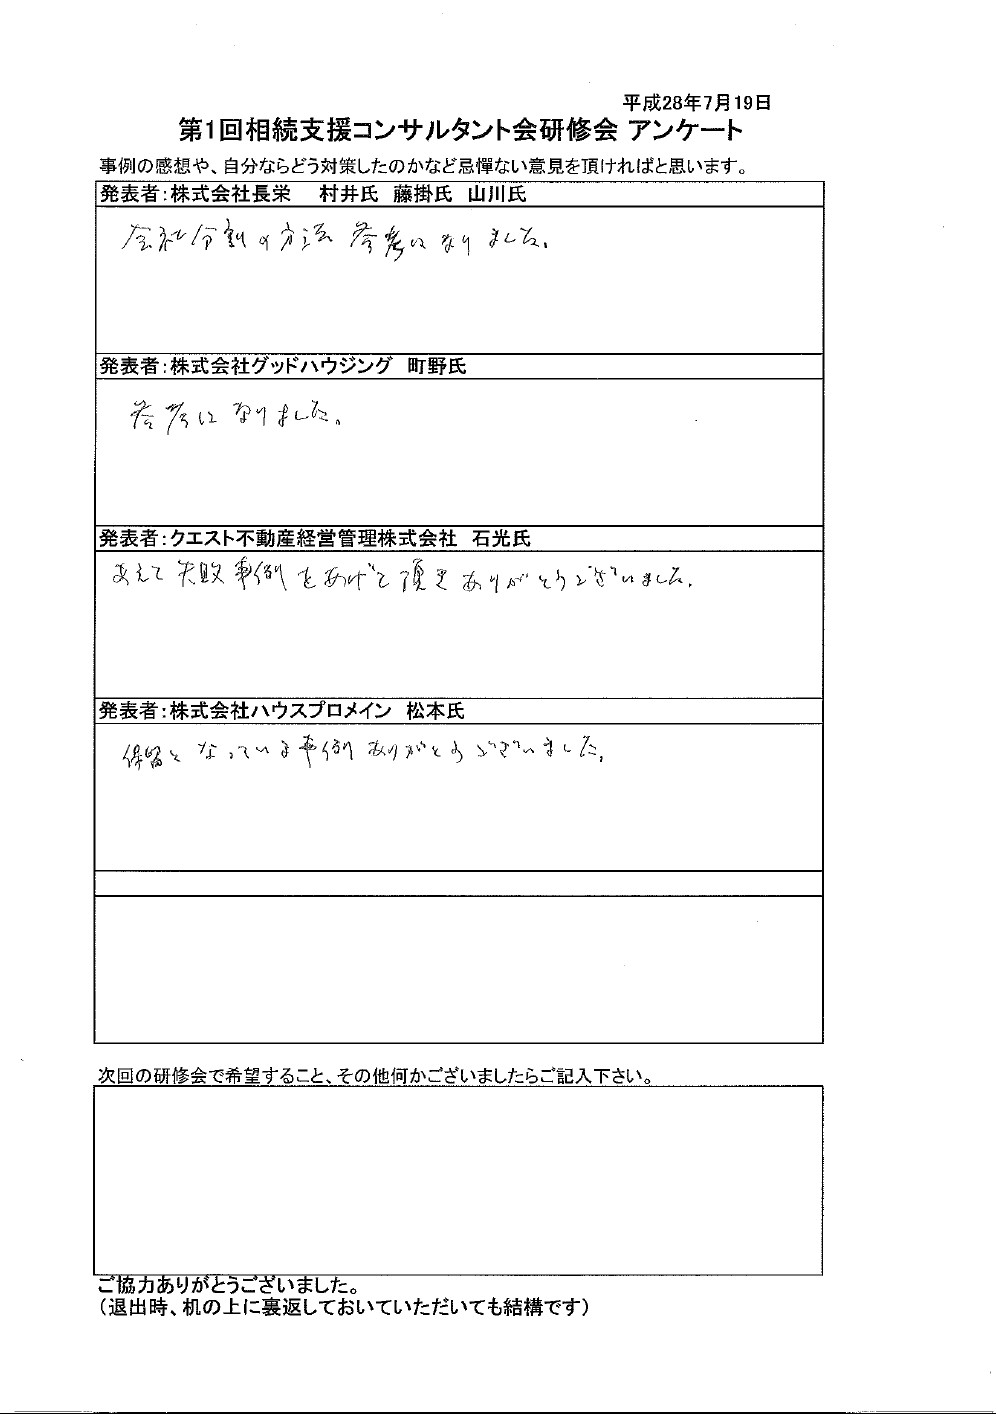 平成28年7月19日
第1回相続支援コンサルタント会研修会 アンケート
事例の感想や、自分ならどう対策したのかなど忌憚ない意見を頂ければと思います。
発表者：株式会社長栄　村井氏　藤掛氏　山川氏
会社分割の方法 参考になりました。
発表者：株式会社グッドハウジング　町野氏
参考になりました。
発表者：クエスト不動産経営管理株式会社　石光氏
あえて失敗事例をあげて頂きありがとうございました。
発表者：株式会社ハウスプロメイン　松本氏
保留となっている事例ありがとうございました。
次回の研修会で希望すること、その他何かございましたらご記入下さい。
ご協力ありがとうございました。
（退出時、机の上に裏返しておいていただいても結構です）